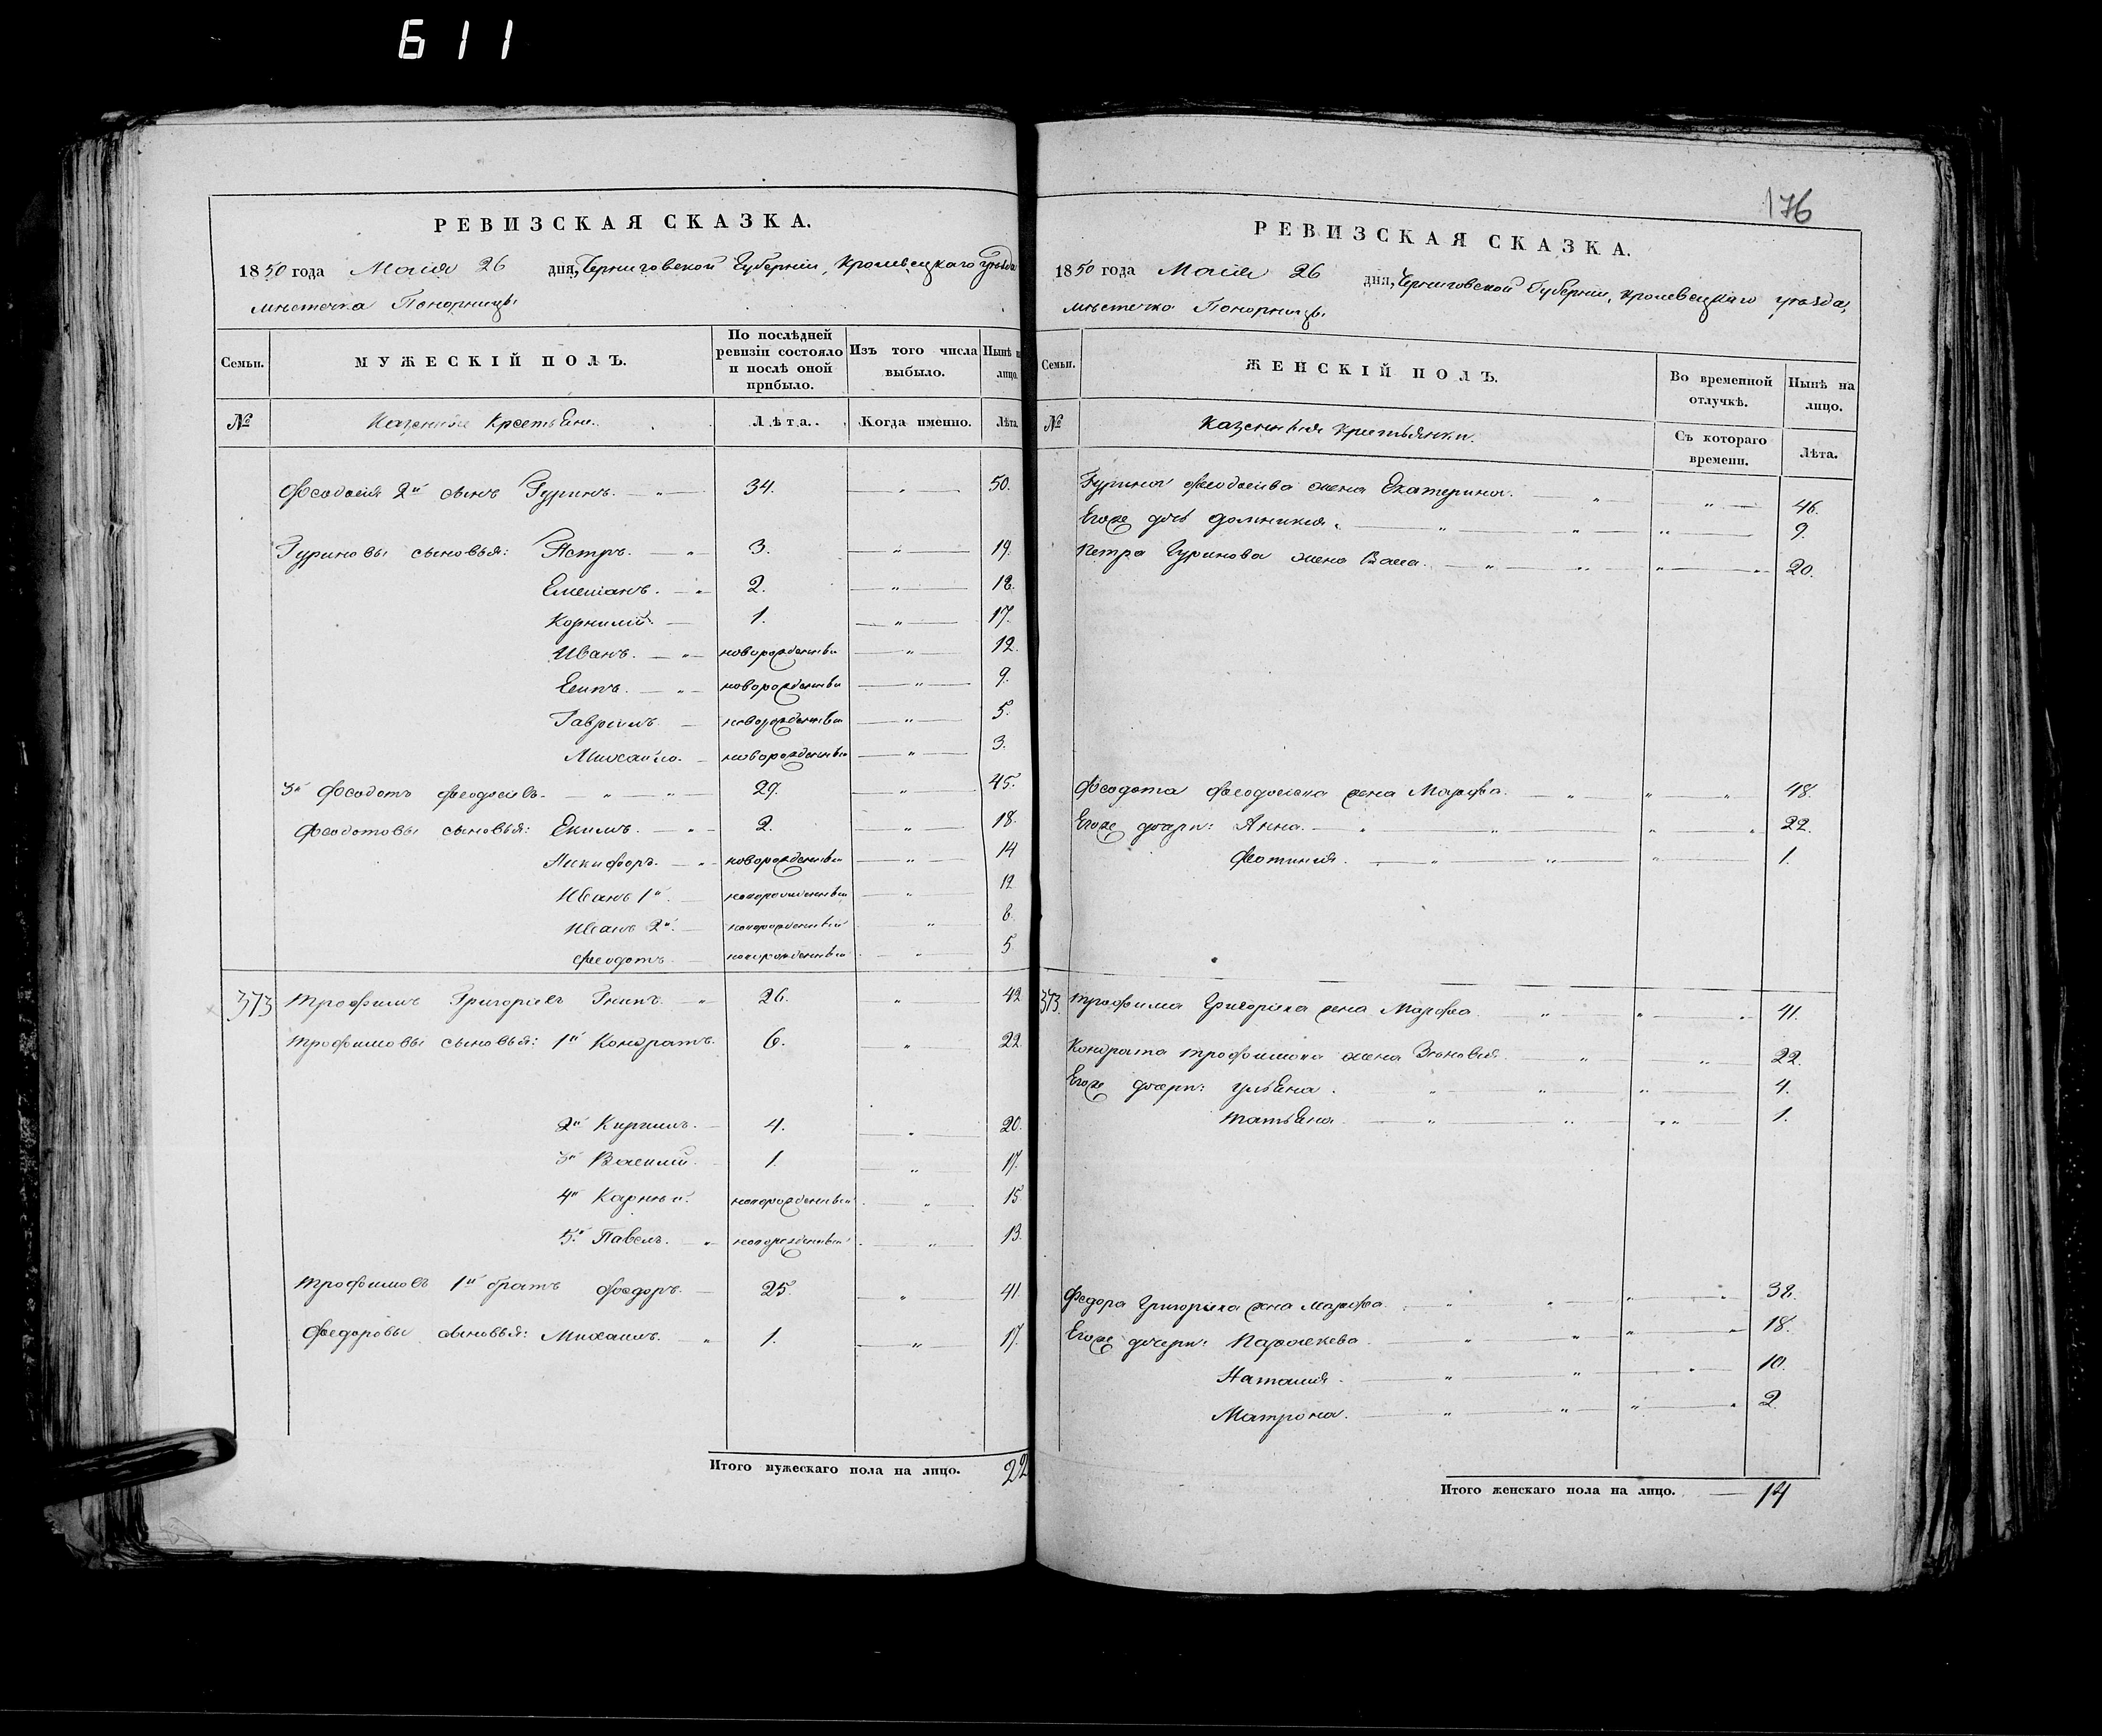 611
РЕВИЗСКАЯ СКАЗКА.
1850 года Маія 26 дня, Черниговской Губерніи, Кролевецкаго уѣзда
мѣстечка Понорницы
Семьи.
МУЖЕСКІЙ ПОЛЪ.
По послѣдней ревизіи состояло и послѣ оной прибыло.
Изъ того числа выбыло.
Нынѣ на лицо.
№
Казенные Крестьяне.
Лѣта.
Когда именно.
Лѣта.
Феодосія 2й сынъ Гуринъ. 34. 50.
Гуриновы сыновья: Петръ. 3. 19.
Емеліанъ. 2. 18.
Корнилій. 1. 17.
Иванъ. новорожденный 12.
Есипъ. новорожденный 9.
Гавріилъ. новорожденный 5.
Михайло. новорожденный 3.
3й Феодотъ Феодосіевъ. 29. 45.
Феодотовы сыновья: Екимъ. 2. 18.
Никифоръ. новорожденный 14
Иванъ 1й. новорожденный 12
Иванъ 2й. новорожденный 8.
Феодотъ. новорожденный 5
373 Трофимъ Григоріевъ Гнипъ. 26. 42
Трофимовы сыновья: 1й Кондратъ. 6. 22.
2й Кирилъ. 4. 20.
3й Василій. 1. 17.
4й Карнѣй. новорожденный 15
5й Павелъ. новорожденный 13.
Трофимовъ 1й братъ Федоръ. 25. 41.
Федоровы сыновья: Михаилъ. 1. 17.
Итого мужескаго пола на лицо. 22
176
РЕВИЗСКАЯ СКАЗКА.
1850 года Маія 26 дня, Черниговской Губерніи, Кролевецкаго уѣзда,
мѣстечка Понорницы.
Семьи.
ЖЕНСКІЙ ПОЛЪ.
Во временной отлучкѣ.
Нынѣ на лицо.
№
Казенныя Крестьянки.
Съ котораго времени.
Лѣта.
Гурина Феодосіева жена Екатерина. 46.
Егоже дочь Домникія. 9.
Петра Гуринова жена Васса. 20.
Феодота Феодосіева жена Марфа. 48.
Егоже дочери: Анна. 22.
Фотинія. 1.
373. Трофима Григоріева жена Марфа 41.
Кондрата Трофимова жена Зѣновія. 22.
Егоже дочери: Ульяна. 4.
Татьяна 1.
Федора Григоріева жена Марфа. 38.
Егоже дочери: Параскева 18.
Наталія. 10.
Матрона. 2.
Итого женскаго пола на лицо. 14